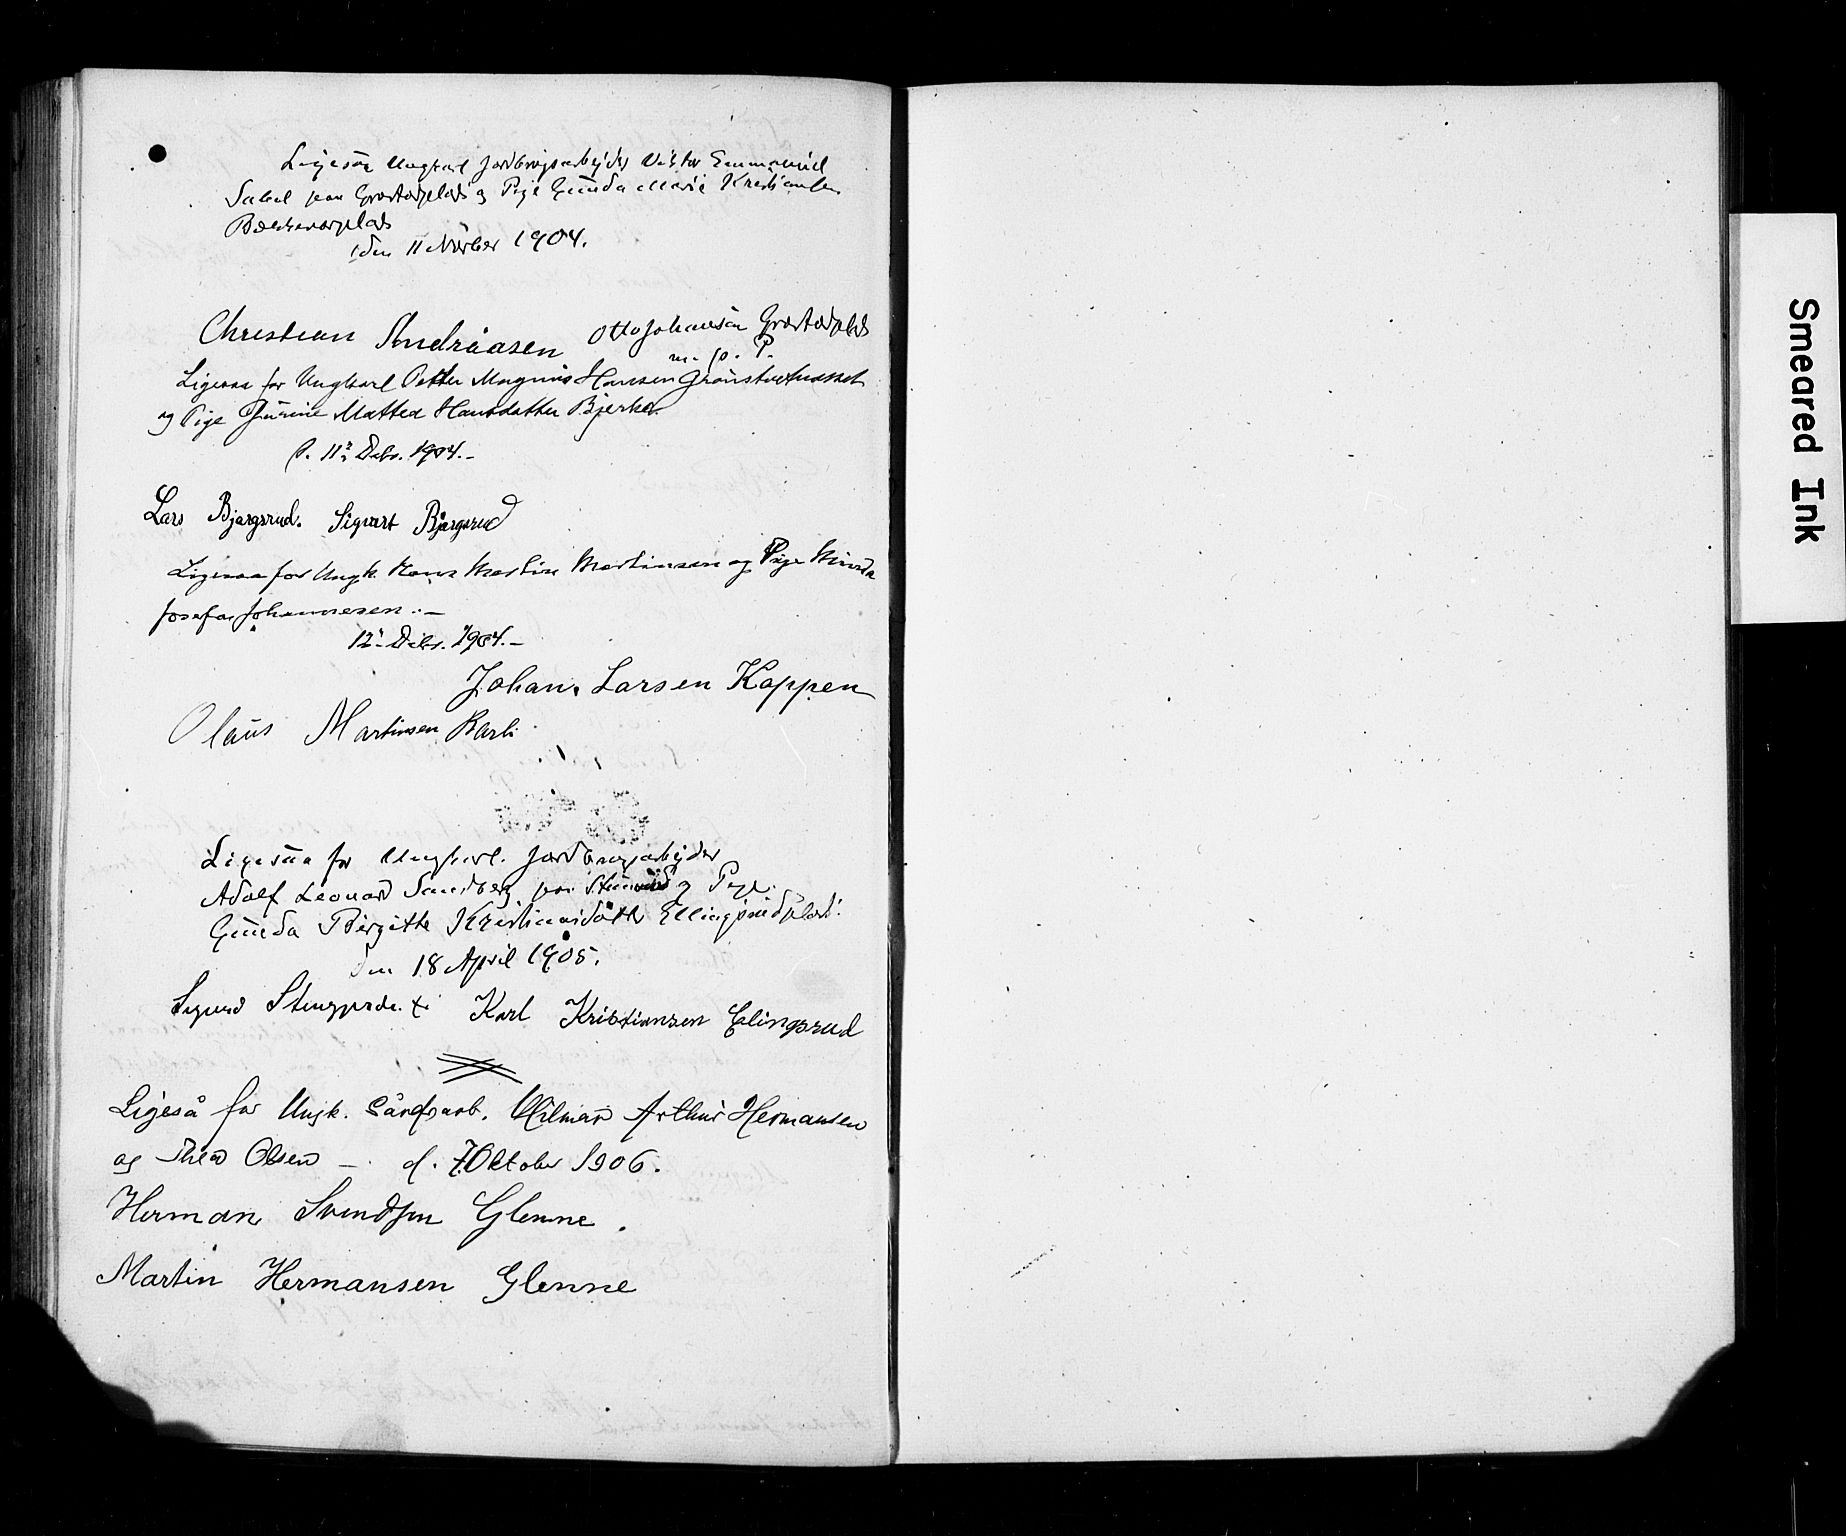 Ligesaa Ungkarl Jordbrugsarbejder Viktor Emmanuel
Sabel paa Grostadplads og Pige Gunda Marie Kristiansen
den 11 Novber 1904.
Christian Andreasen Otto Johansen Grostadplads
m. p. P.
Ligesaa for Ungkarl Petter Magnus Hansen
og Pige Mathea Hansdatter Bjerke
d. 11te Debr. 1904.-
Lars Bjargsrud. Sigvart Bjargsrud
Ligesaa for Ungk. Hans Martin Martinsen og Pige Minda
Josefa Johannesen.-
12te Debr. 1904.-
Johan. Larsen Koppen
Olaus Martinsen Barli
Ligesaa for Ungkarl. Jordbrugsarbejder
Adolf Leonard Sandberg paa og Pige
Gunda Birgitte Kristiansdatter Ellingsrudplads.
den 18 April 1905.
Sigurd Karl Kristiansen Elingsrud
Ligeså for Ungk. Hilmar Arthur Hermansen
og Thea Olsen -. d. 7 Oktober 1906.
Herman Svendsen Glenne.
Martin Hermansen Glenne
Smeared Ink